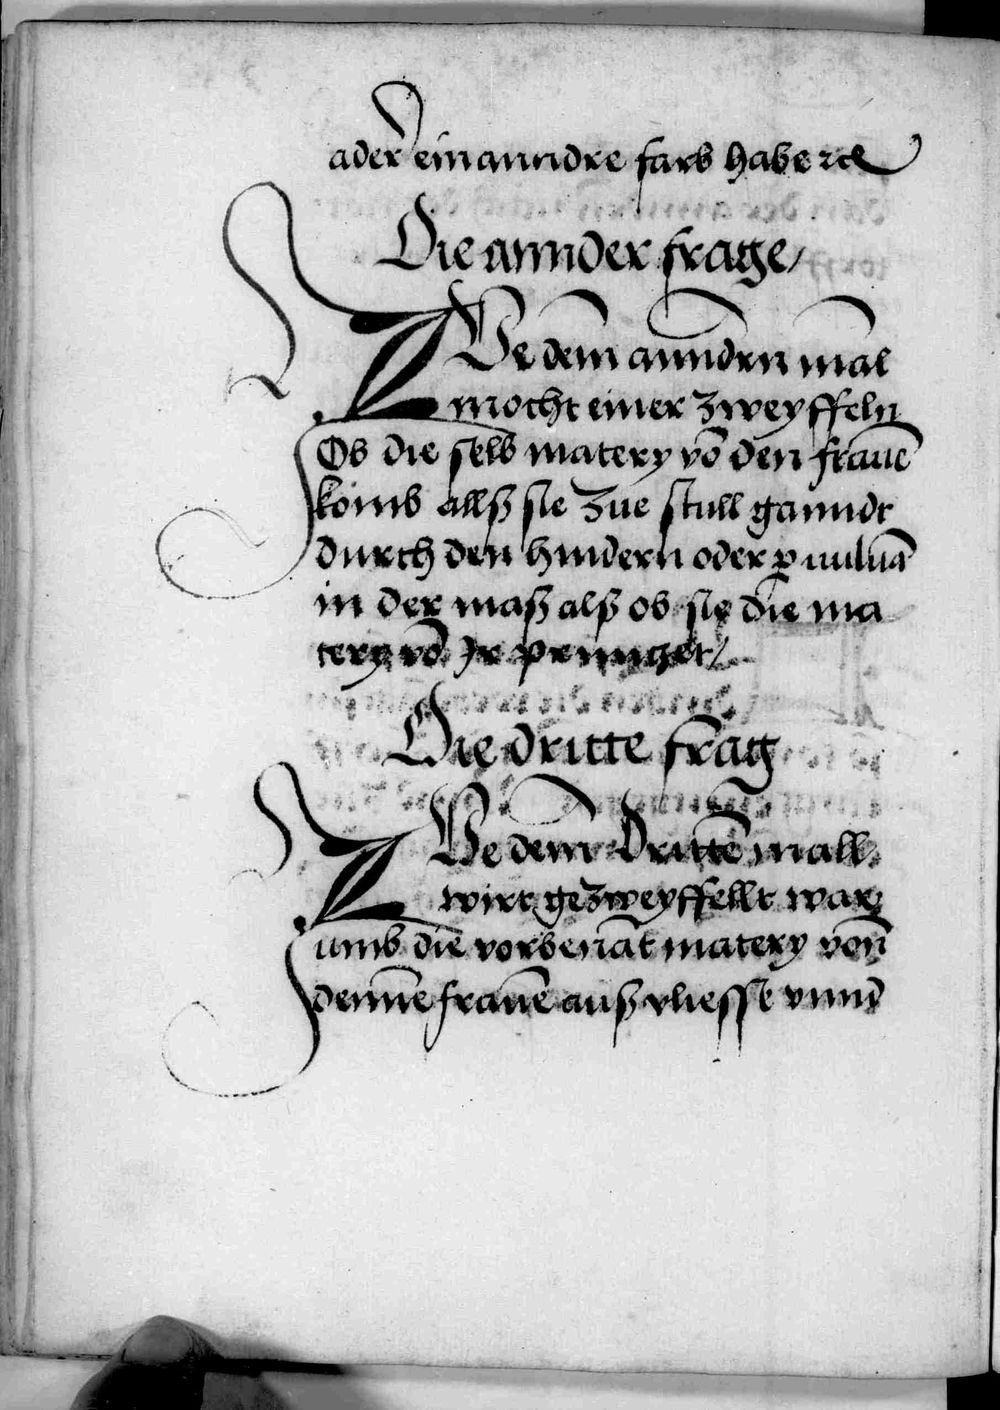 ader ein anndre farb habe ꝛc
Die annder frage/
ZVe dem anndrn mal
mocht einer zweyffeln
Ob die selb matery võ den frauē
komb allß sie zue stull ganndt
durch den hindern oder ꝑ uuluā
in der maß alß ob sie die ma
tery võ Jr prunget/
Die dritte frag
ZVe dem Drittē mall
wirt gezweyffellt war
umb die vorbenāt matery von
dennē frauē auß vliesse vnnd